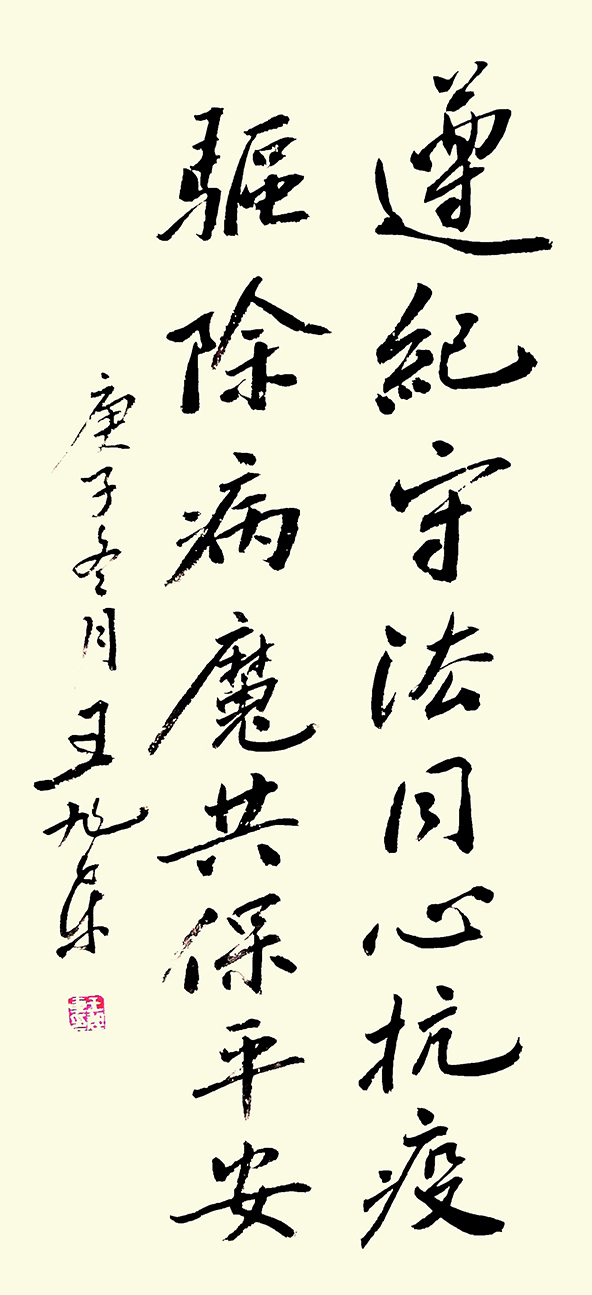 遵紀守法同心抗疫
驅除病魔共保平安
庚子冬月王旭